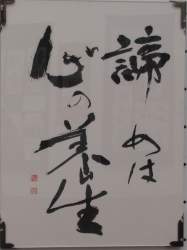 諦めは
心の養生